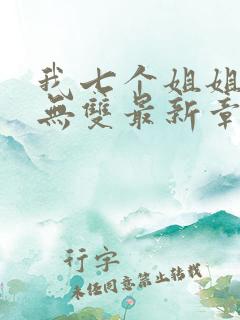 我七个姐姐
無雙最新章
行字
未经同意禁止转载